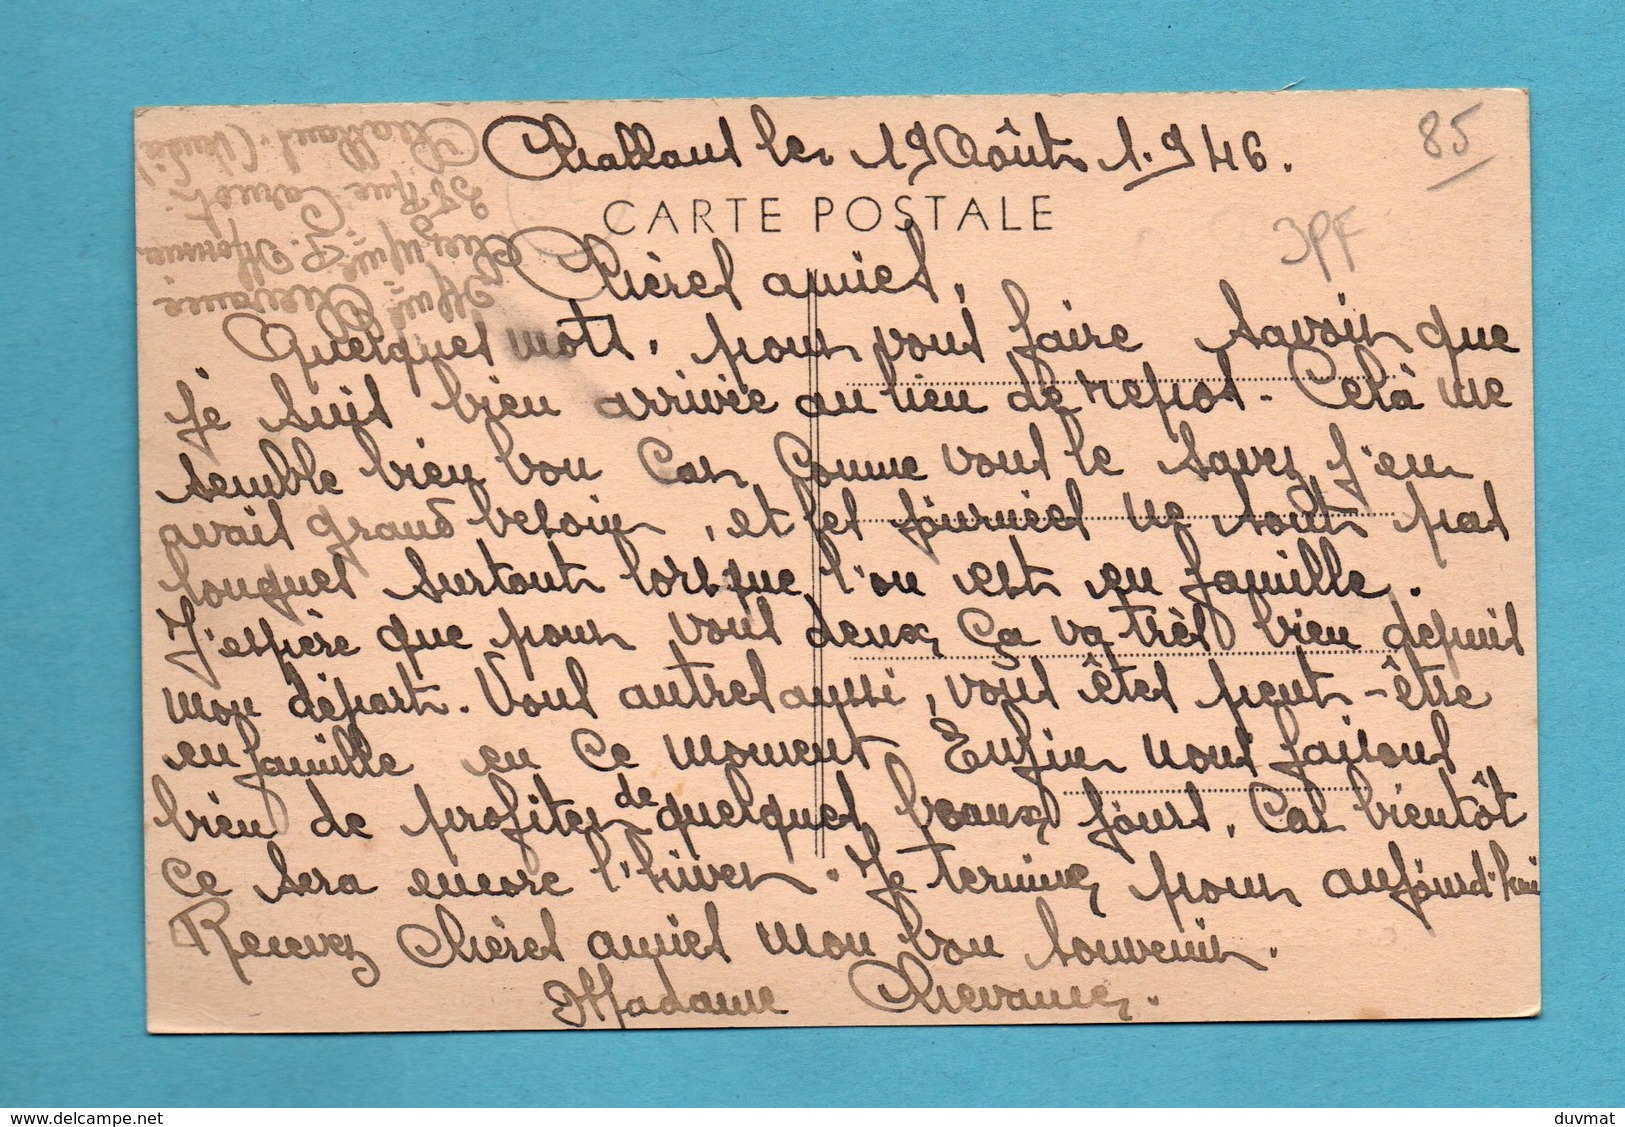 Challans le 19 Août 1.946.
85
CARTE POSTALE
3PF
Chères amies,
Quelques mots, pour vous faire savoir que
je suis bien arrivée au lieu de repos. Celà me
semble bien bon car comme vous le savez j'en
avais grand besoin, et les journées ne sont pas
longues surtout lorsque l'on est en famille.
J'espère que pour vous deux ça va très bien depuis
mon départ. Vous autres aussi, vous êtes peut-être
en famille en ce moment. Enfin nous faisons
bien de profiter de quelques beaux jours, car bientôt
ce sera encore l'hiver. Je termine pour aujourd'hui
Recevez chères amies mon bon souvenir.
Madame Chevance.
Mme Chevance
chez Mme P.
35 Rue Carnot
Challans (Vendée)
www.delcampe.net
duvmat